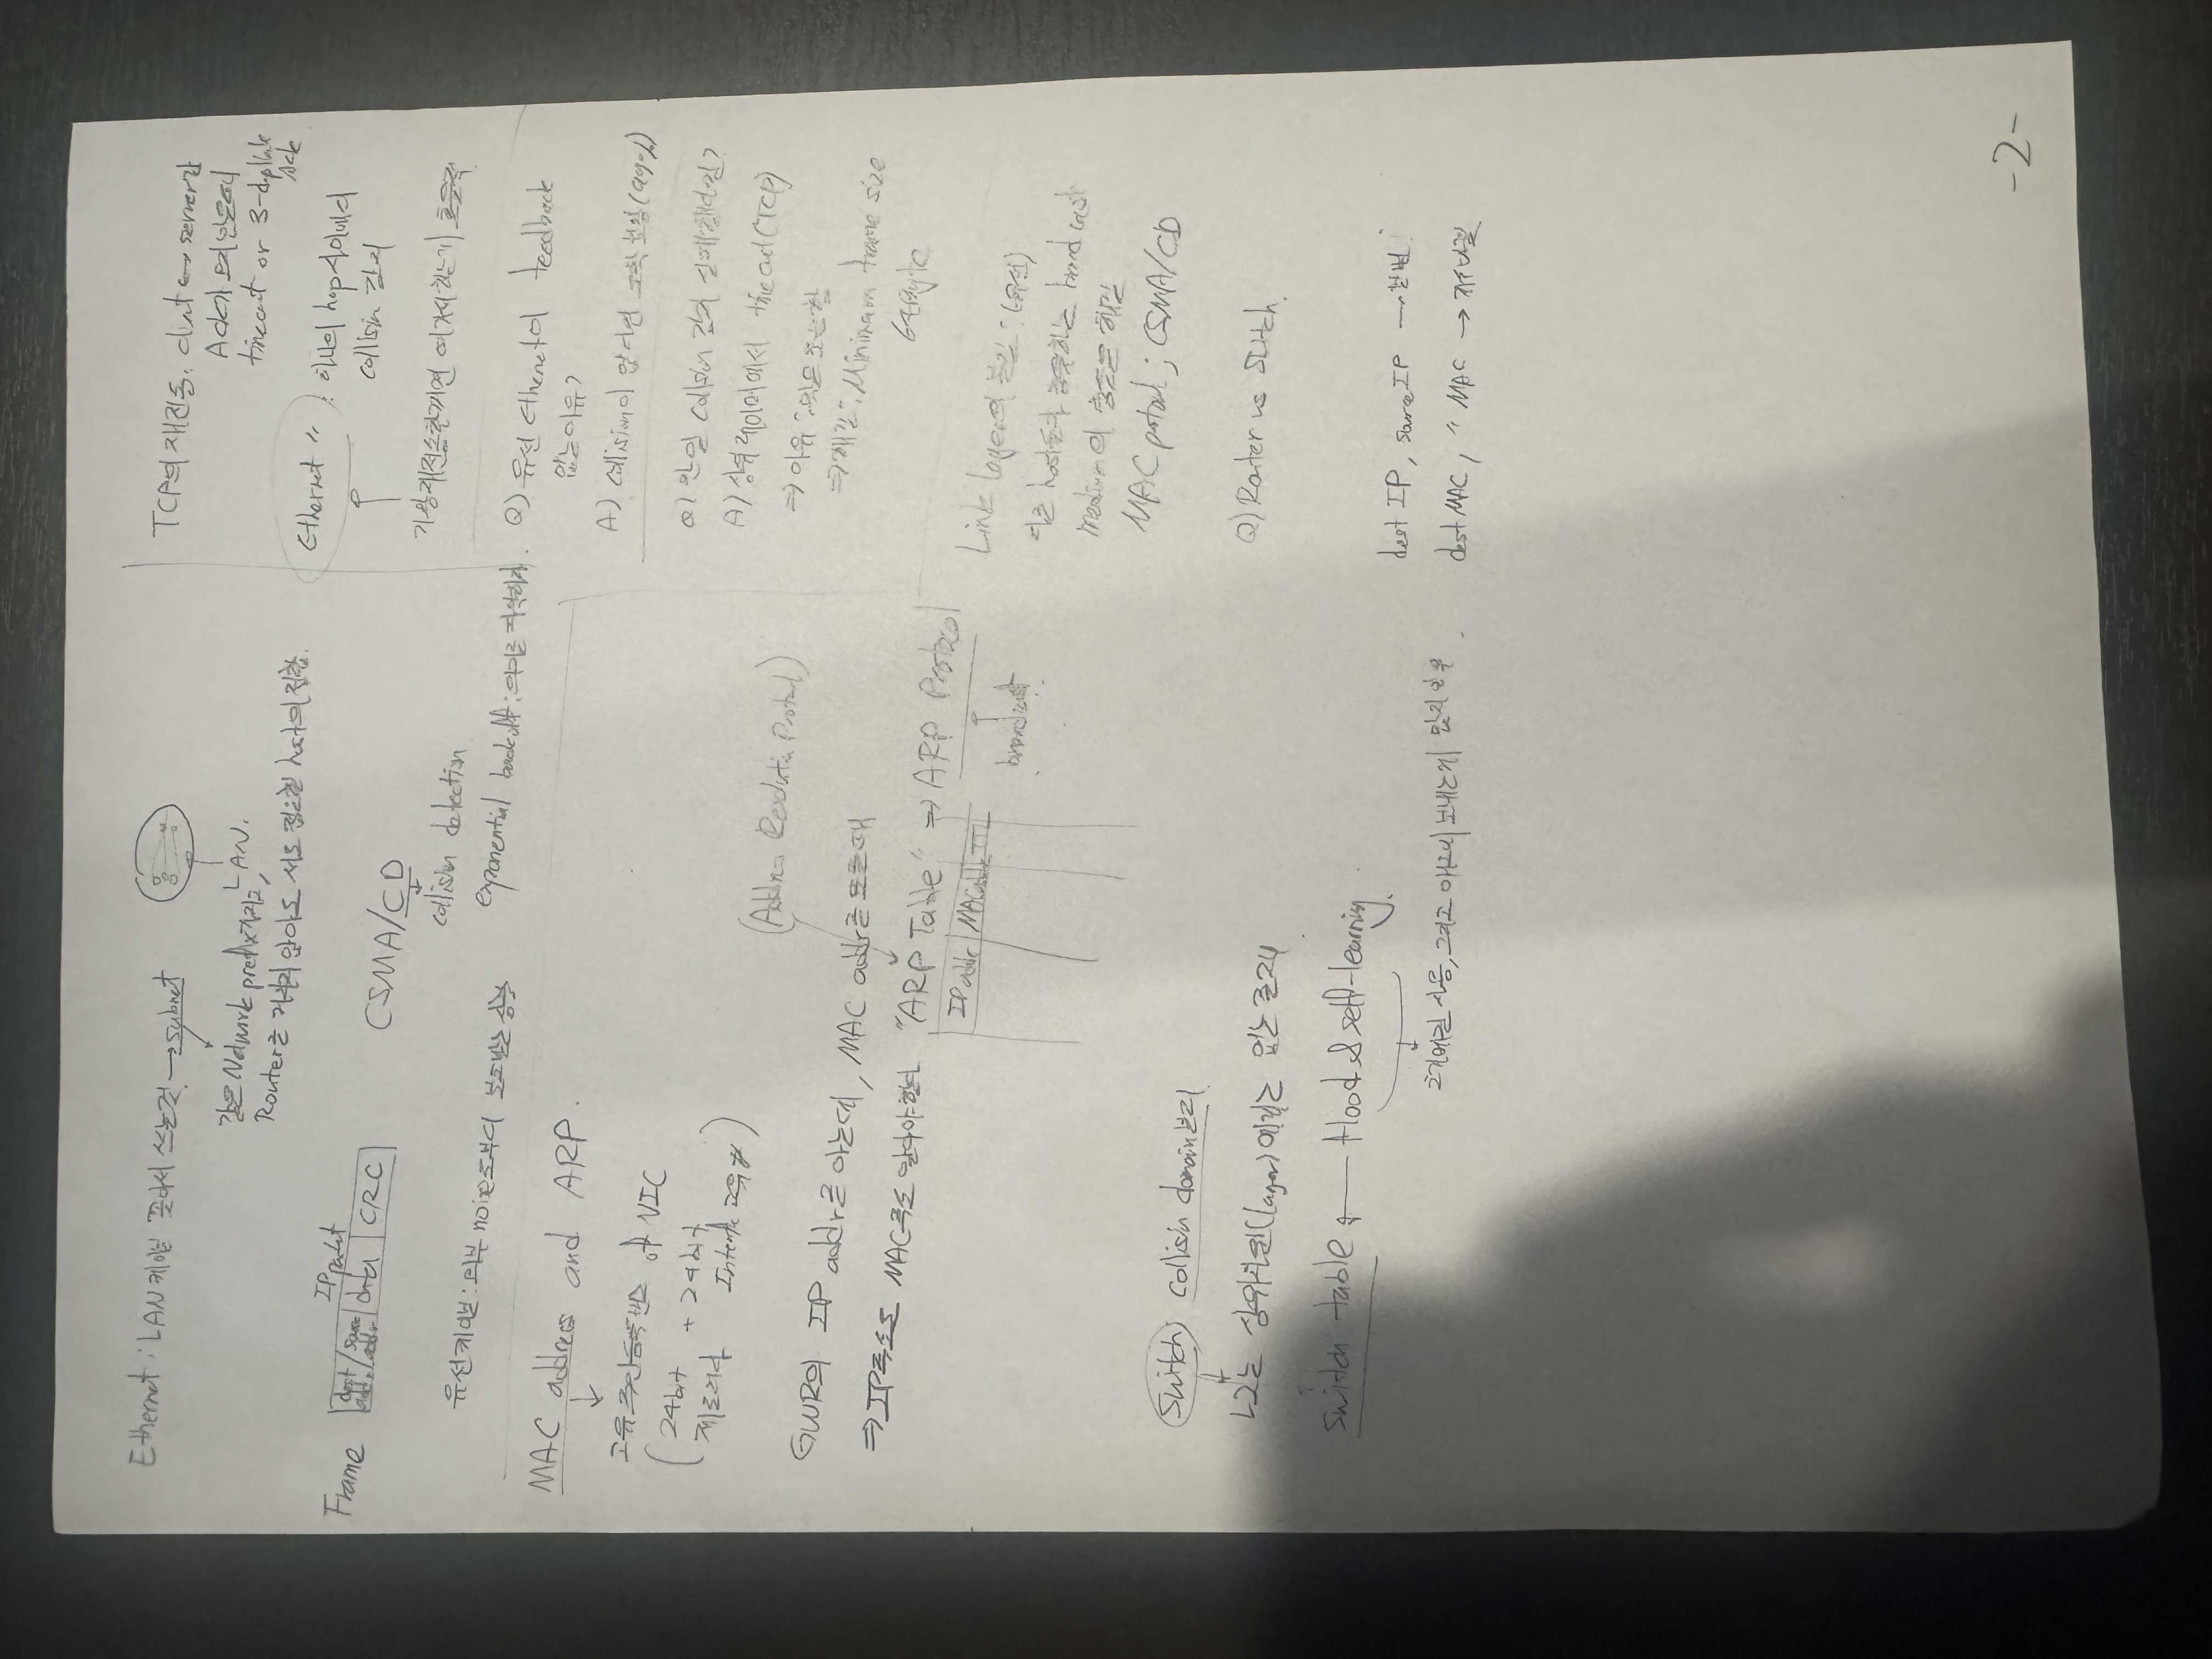 Ethernet : LAN 케이블 꽂아서 쓰는것 → subnet
LAN.
같은 Network prefix 가지고,
Router를 거치지 않아도 서로 접근할 host의 집합.
Frame
IP packet
dest addr / source addr | data | CRC
CSMA/CD
collision detection
exponential backoff :
유선케이블 : 외부 noise로부터 보호받는 상황
MAC address and ARP.
고유 주민등록번호 of NIC
24bit + 24bit
제조회사 Interface 고유 #
(Address Resolution Protocol)
GWR의 IP addr은 아는데, MAC addr를 모를때
⇒ IP주소로 MAC주소 알아야한다 "ARP Table" ⇒ ARP Protocol
IP addr | MAC addr | TTL
broadcast
Switch collision domain 분리
L2는 상위 (layer)에게는 없는 존재
switch table ← flood & self-learning
TCP의 재전송. client ↔ server간
Ack가 못 받은
timeout or 3-duplicate
Ack
Ethernet 〃 : 하나의 hop 사이에서
collision 감지
기왕 재전송할꺼면 여기서 하는게 효율적
Q) 유선 Ethernet이 feedback
없는이유?
A) collision이 없다면 도착 보장 (99%)
Q) 만일 collision 감지 실패했다면?
A) 상위 레이어에서 time out (TCP)
⇒ 이유 :
⇒ 해결 : Minimum frame size
64Byte
Link layer의 본질 : (유선)
다른 host들과 공유하는 broadcast
medium의 충돌을 해결
MAC protocol ; CSMA/CD
Q) Router vs Switch.
dest IP, source IP →
dest MAC, 〃 MAC →
-2-